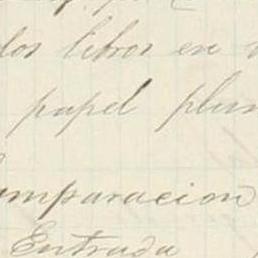 los libros en
papel plum
mparacion
Entrada